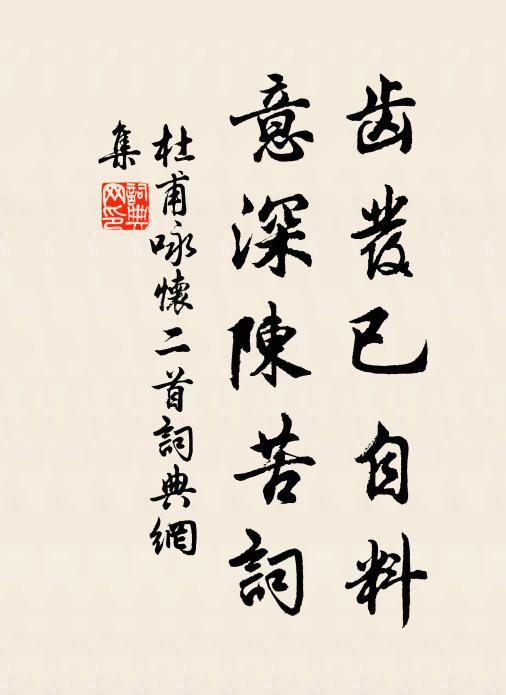 齿發已自料
意深陳苦詞
杜甫咏懷二首詞典網
集
詞典
网印